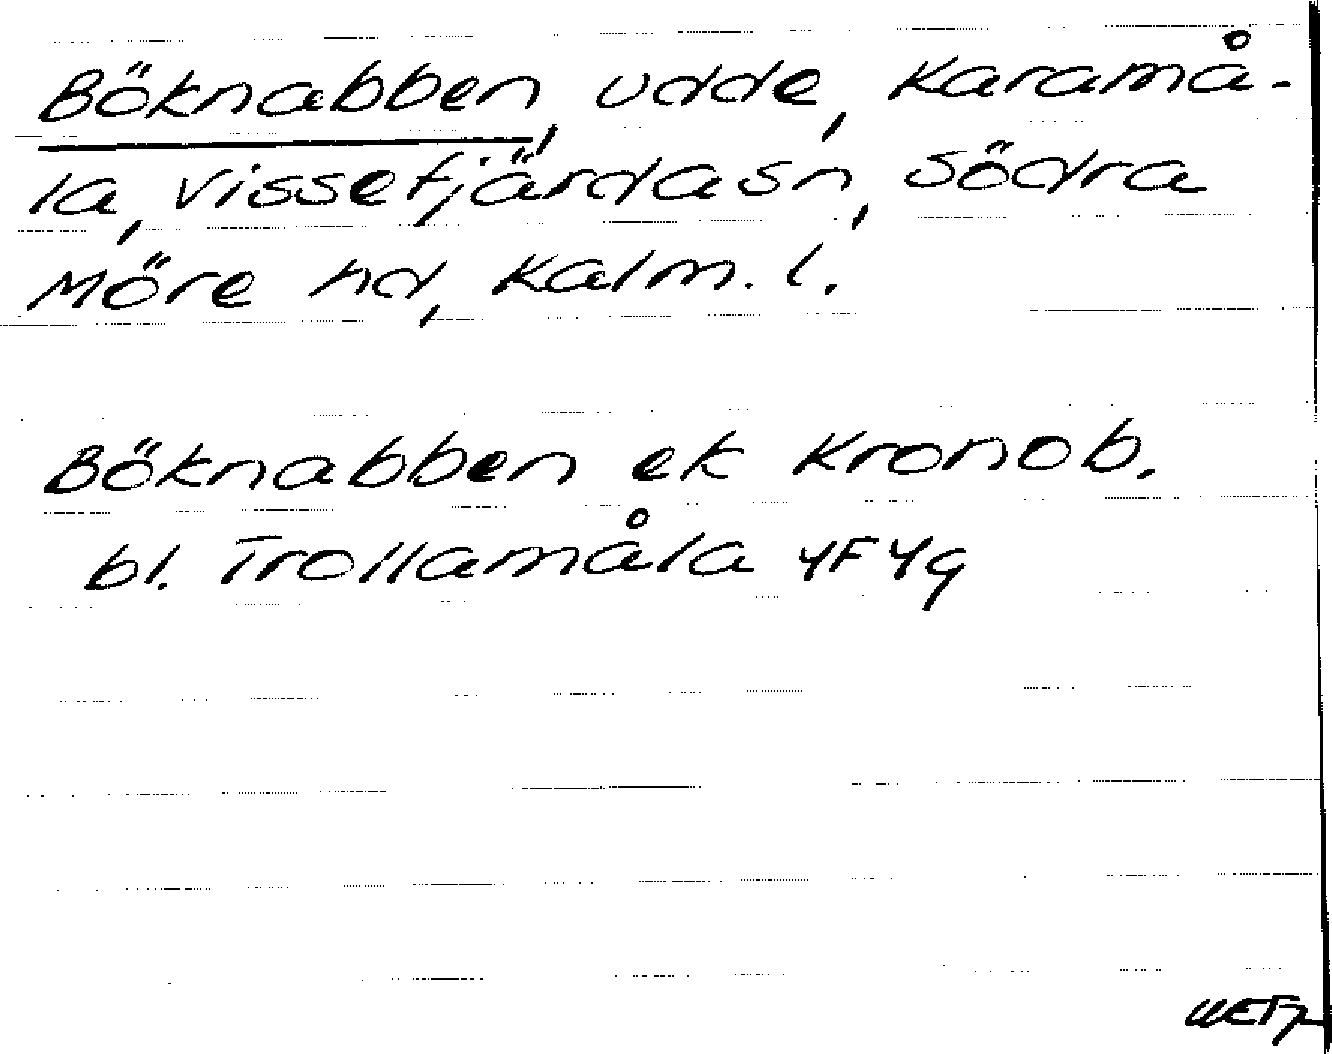 Böknabben, udde, Karamå-
la, Vissefjärda sn, Södra
Möre hd, Kalm. l.
Böknabben ek Kronob.
bl. Trollamåla 4F4g